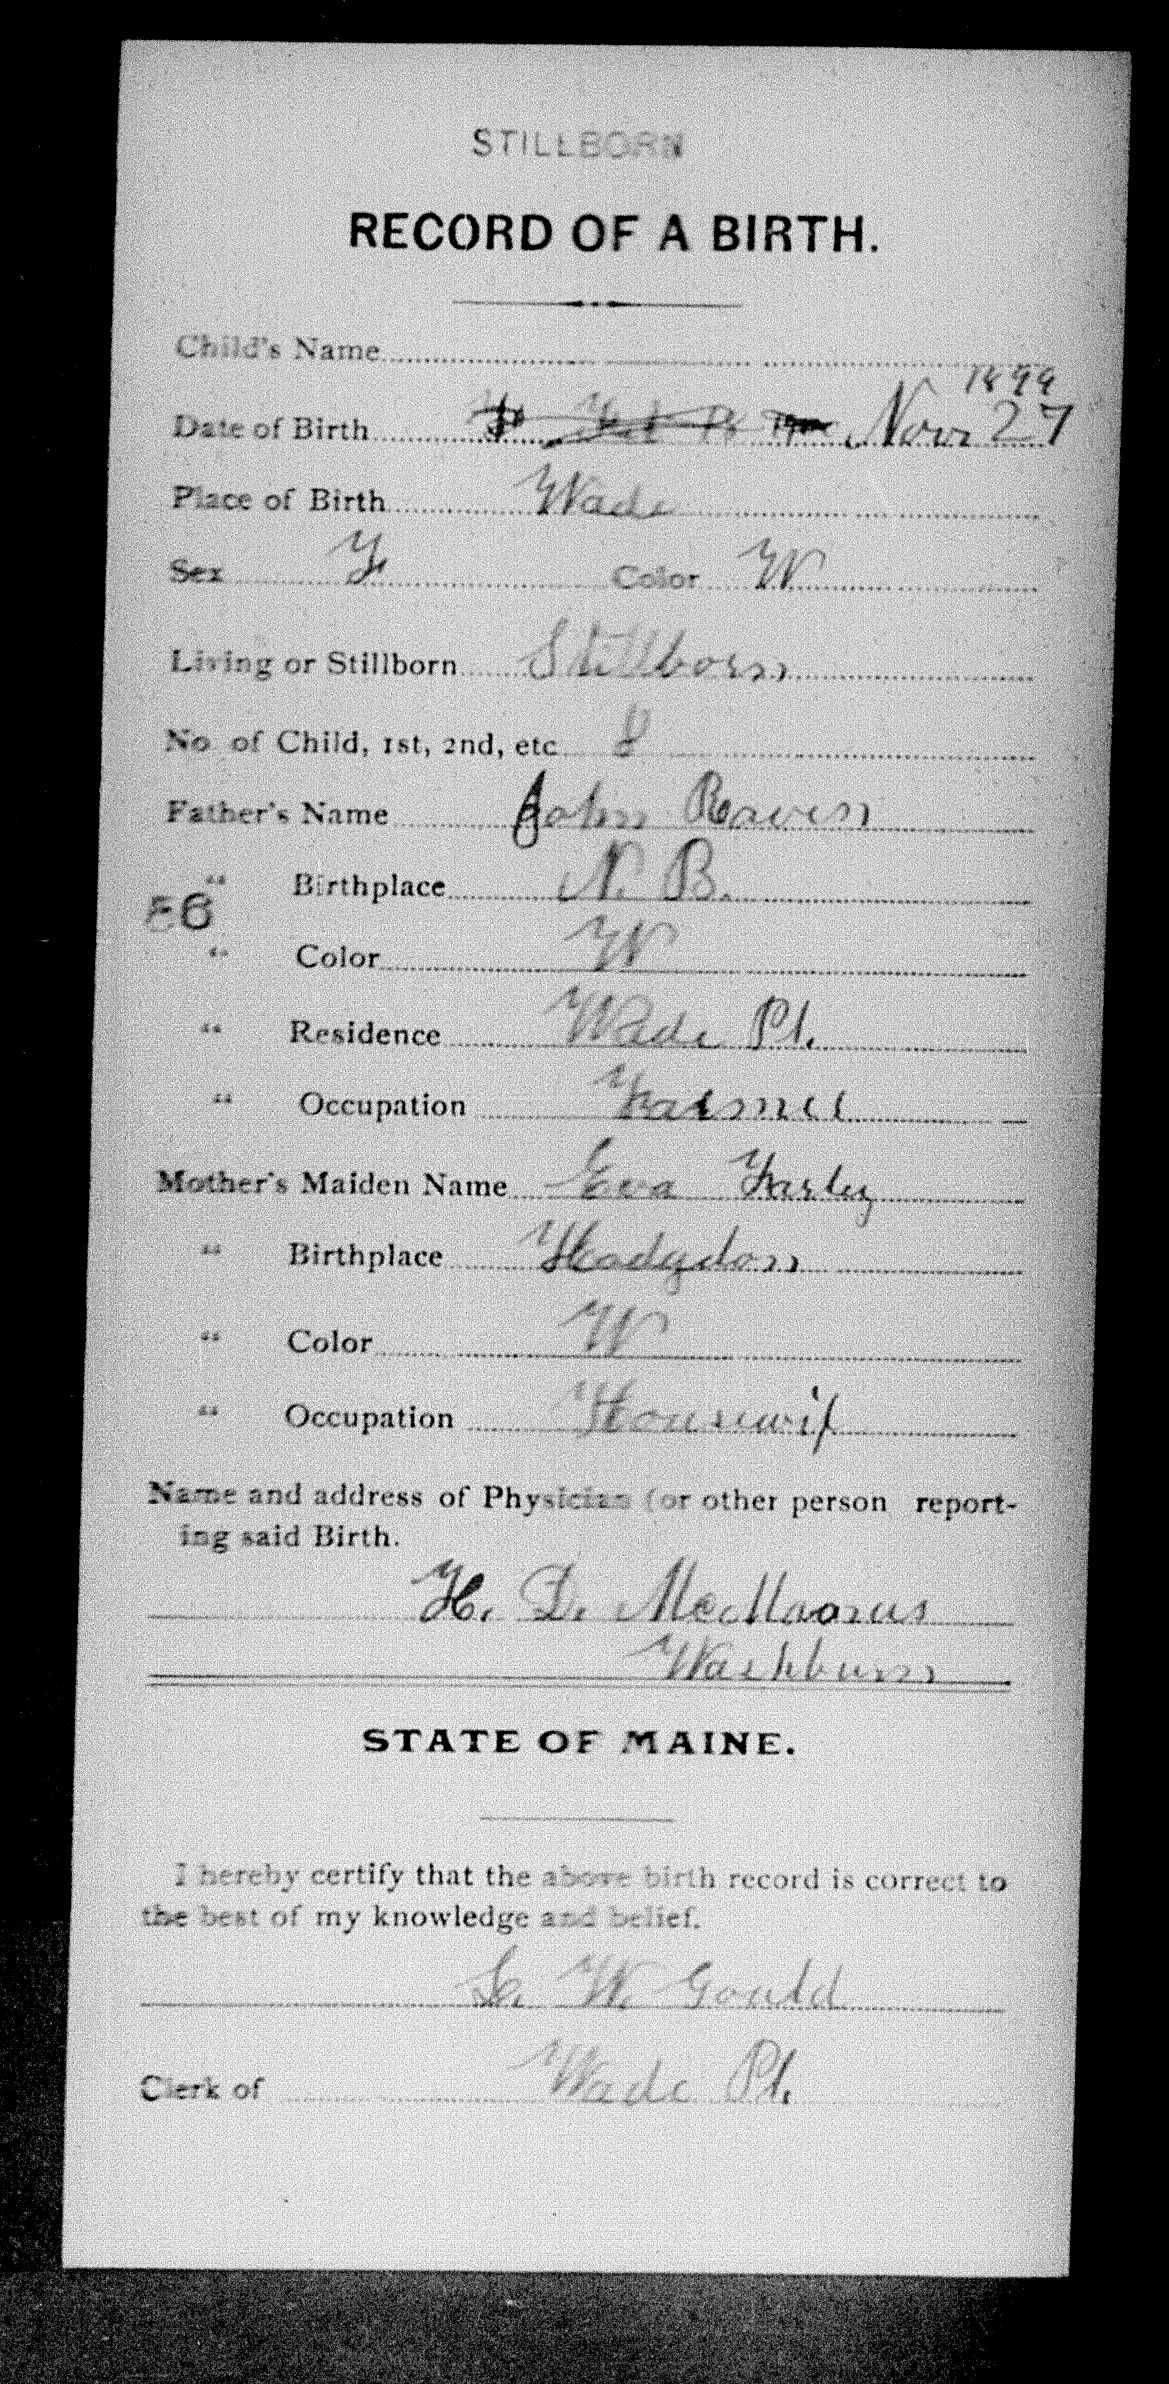 STILLBORN
RECORD OF A BIRTH.
Child's Name
1899
Date of Birth Nov 27
Place of Birth Wade
Sex F Color W
Living or Stillborn Stillborn
No of Child, 1st, 2nd, etc 8
Father's Name John Raven
" Birthplace N. B.
" Color W
" Residence Wade Pl.
" Occupation Farmer
Mother's Maiden Name Eva Farley
" Birthplace Hodgdon
" Color W
" Occupation Housewif
Name and address of Physician (or other person report-
ing said Birth.
H. D. McManus
Washburn
STATE OF MAINE.
I hereby certify that the above birth record is correct to
the best of my knowledge and belief.
W. Gould
Clerk of Wade Pl.